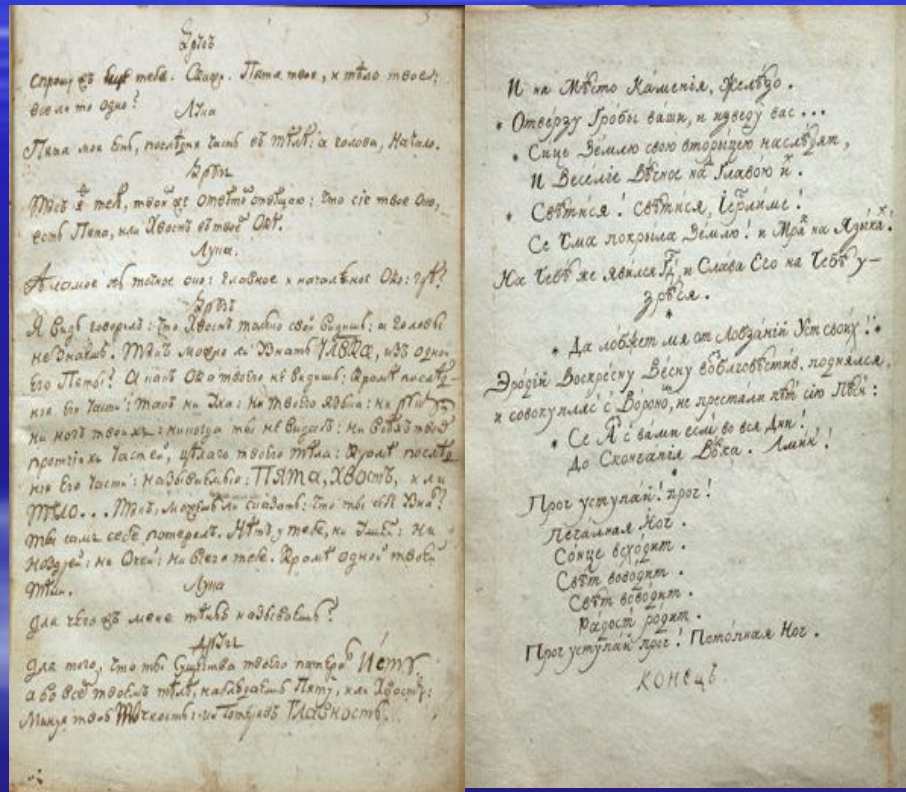 Другъ
спрошу жъ еще тебе. Скажи. Пята твоя, и тѣло твое:
все ли то одно?
Лука
Пята моя есть, послѣдня часть въ тѣлѣ: а голова, Начало.
Другъ
твой же отвѣтъ отвѣщаю: что сіе твое Око,
есть Пята, или Хвостъ въ твоем Окѣ.
Лука.
А самое жъ точное око: главное и начальное Око: гдѣ?
Другъ
Я вѣдь говорилъ: что Хвостъ только свой видишь: а головы
не знаешь. можно ли Узнать ЧЛВКА, изъ одной
Его Пяты? А какъ Ока твоего не видишь: Кромѣ послѣд-
нія Его Части: такъ ни Уха: ни твоего Языка: ни рукъ
ни ногъ твоихъ: никогда ты не видалъ: ни всѣхъ твоих
протчіихъ Частей, цѣлаго твоего тѣла: Кромѣ послѣд
нія Его Части: называемыя: ПЯТА, ХВОСТЪ, или
ТѢНЬ... можешь ли сказать: что ты себе Узнал?
ты самъ себе потерялъ. Нѣтъ у тебе, ни Ушей: ни
Ноздрей: ни Очей: ни всего тебе. Кромѣ одной твоей
тѣни.
Лука
Для чего жъ мене тѣнью называешь?
Другъ
Для того, что ты Существа твоего потерял Исту,
а во всем твоемъ тѣлѣ, наблюдаешь Пяту, или Хвостъ:
Минуя твою Точность: и Потерялъ ГЛАВНОСТЬ.
И на Мѣсто Каменія, Желѣзо.
* Отверзу Гробы ваши, и изведу вас...
* Сице Землю свою вторицею наслѣдят,
И Веселіе Вѣчное над Главою их.
* Свѣтися! Свѣтися, Іерлиме!
Се Тма покрыла Землю! и Мрак на Языки!
На Тебѣ же явился Гдь, и Слава Его на Тебѣ у-
зрѣся.
*
* Да лобжет мя от Лобзаній Уст своих! *
Эродій Воскресну Весну воблаговѣстив, поднялся,
и совокупляс с Вороно, не престали пѣт сію Пѣсн:
* Се Я с вами есмь во вся Дни!
До Сконченія Вѣка. Аминь!
*
Проч уступай! проч!
Печалная Ноч.
Сонце всходит.
Свѣт воводит.
Свѣт воводит.
Радост родит.
Проч уступай проч! Потопная Ноч.
КОНЕЦЪ